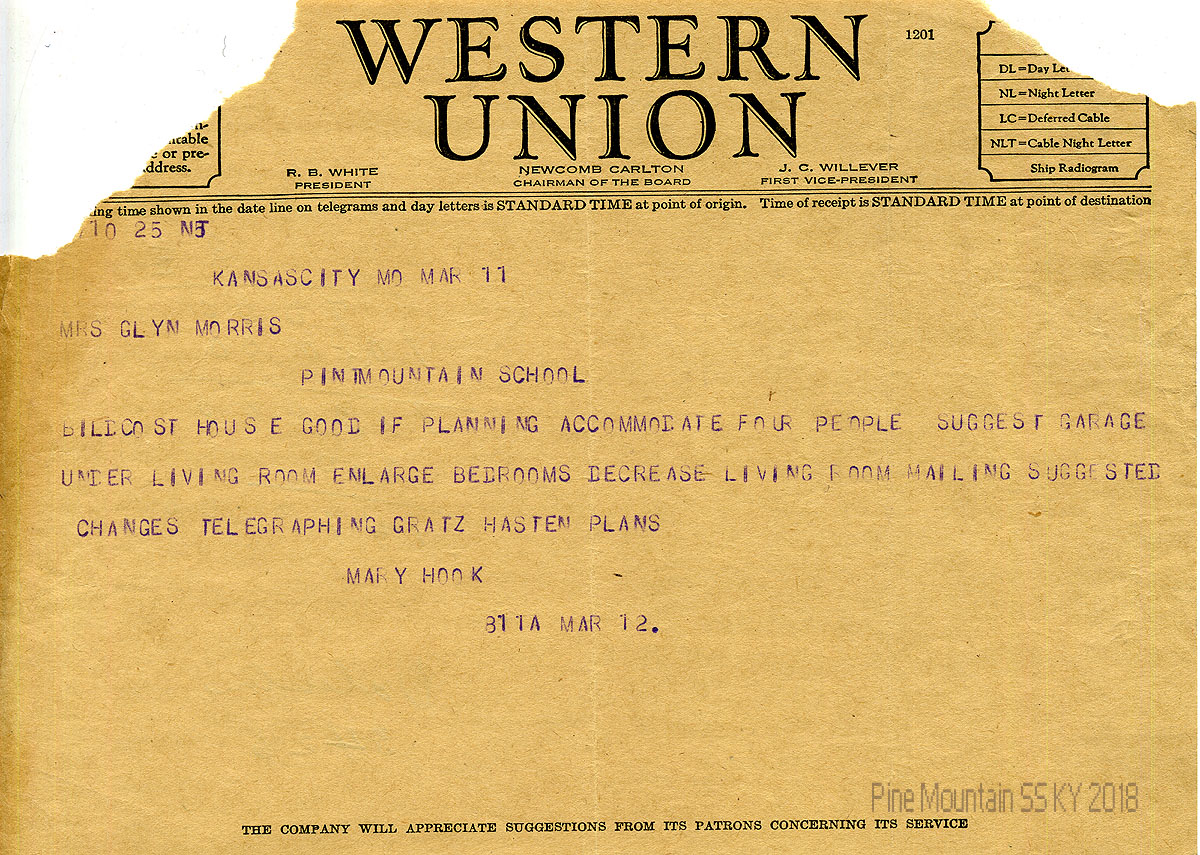 WESTERN
UNION
1201
DL=Day
NL=Night Letter
LC=Deferred Cable
NLT=Cable Night Letter
Ship Radiogram
or pre-
address.
R. B. WHITE
PRESIDENT
NEWCOMB CARLTON
CHAIRMAN OF THE BOARD
J. C. WILLEVER
FIRST VICE-PRESIDENT
time shown in the date line on telegrams and day letters is STANDARD TIME at point of origin. Time of receipt is STANDARD TIME at point of destination
10 25
KANSASCITY MO MAR 11
MRS GLYN MORRIS
MOUNTAIN SCHOOL
BILDCOST HOUSE GOOD IF PLANNING ACCOMMODATE FOUR PEOPLE SUGGEST GARAGE
UNDER LIVING ROOM ENLARGE BEDROOMS DECREASE LIVING ROOM MAILING SUGGESTED
CHANGES TELEGRAPHING GRATZ HASTEN PLANS
MARY HOOK
811A MAR 12.
Pine Mountain SS KY 2018
THE COMPANY WILL APPRECIATE SUGGESTIONS FROM ITS PATRONS CONCERNING ITS SERVICE